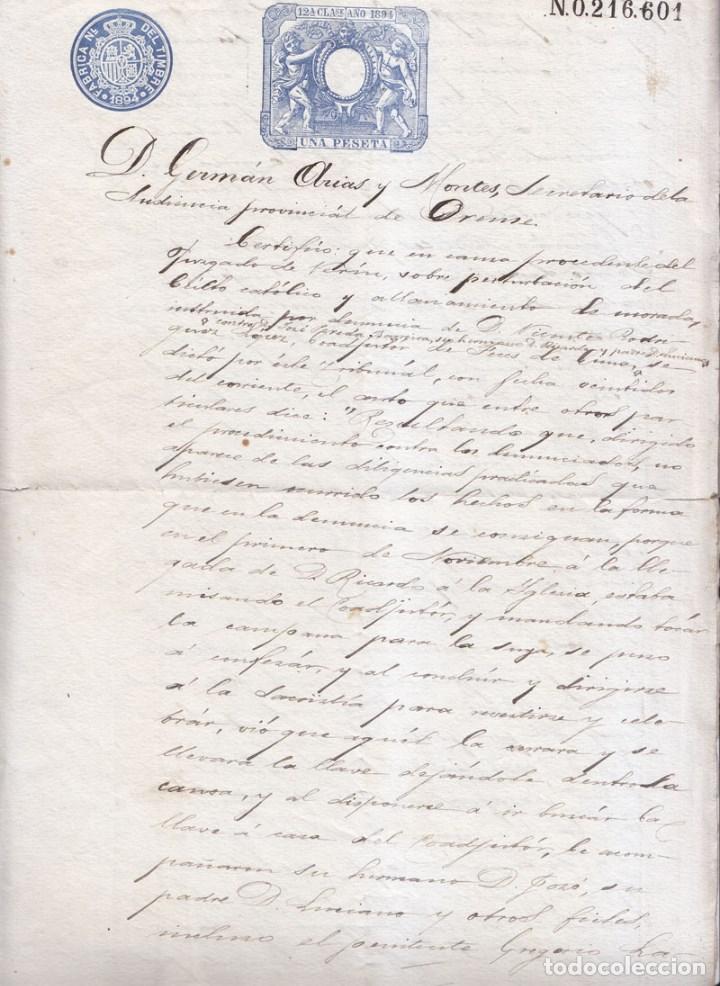 N.0.216.601
12ª CLASE AÑO 1894
FABRICA NL. DEL TIMBRE
1894
UNA PESETA
D. Germán Arias y Montes, Secretario de la
Audiencia provincial de Orense.
Certifico: que en causa procedente del
Juzgado de Verín, sobre perturbación del
Culto católico y allanamiento de morada,
instruida por denuncia de D. Vicente Rodri-
contra D. José su hermano D. Ricardo y padre D. Luciano
guez López, Coadjutor de de se
dictó por este Tribunal, con fecha veintidos
del corriente, el auto que entre otros par-
ticulares dice: "Resultando que, dirigido
el procedimiento contra los denunciados, no
aparece de las diligencias practicadas que
hubiesen ocurrido los hechos en la forma
que en la denuncia se consignan, porque
en el primero de Noviembre á la lle-
gada de D. Ricardo á la Iglesia, estaba
misando el Coadjutór, y mandando tocár
la campana para la suya, se puso
á confesár, y al concluir y dirigirse
á la Sacristía para revestirse y cele-
brár, vió que aquél la cerrara y se
llevara la llave dejándole dentro la
causa, y al disponerse á ir buscár la
llave á casa del Coadjutór, le acom-
pañaron su hermano D. José, su
padre D. Luciano y otros fieles,
incluso el penitente Gregorio La
todocoleccion.net